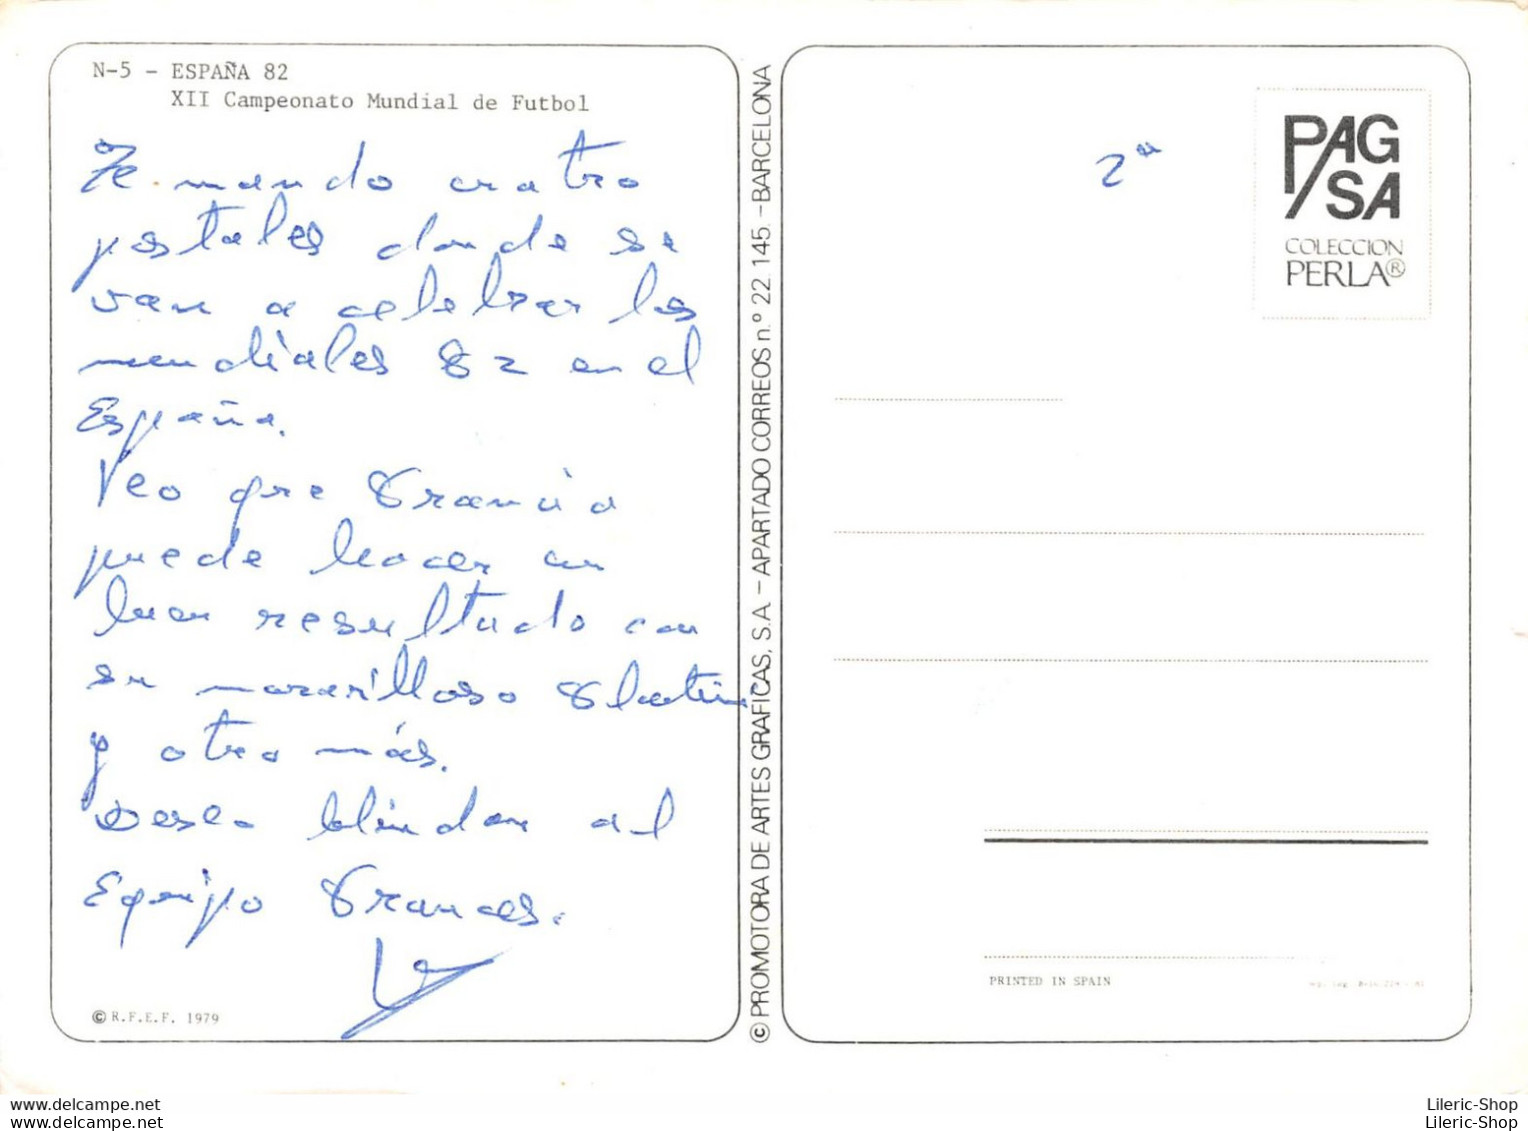 N-5 - ESPAÑA 82
XII Campeonato Mundial de Futbol
Te mando cuatro
postales donde se
van a celebrar los
mundiales 82 en el
España.
Veo que Francia
puede hacer un
buen resultado con
su maravilloso Platini
y otro más.
Deseo
al
Equipo Frances.
© R.F.E.F. 1979
© PROMOTORA DE ARTES GRAFICAS, S.A. - APARTADO CORREOS n.º 22.145 - BARCELONA
2ª
PAGSA
COLECCION
PERLA®
PRINTED IN SPAIN
Lileric-Shop
Lileric-Shop
myloc.me.com
myloc.me.com